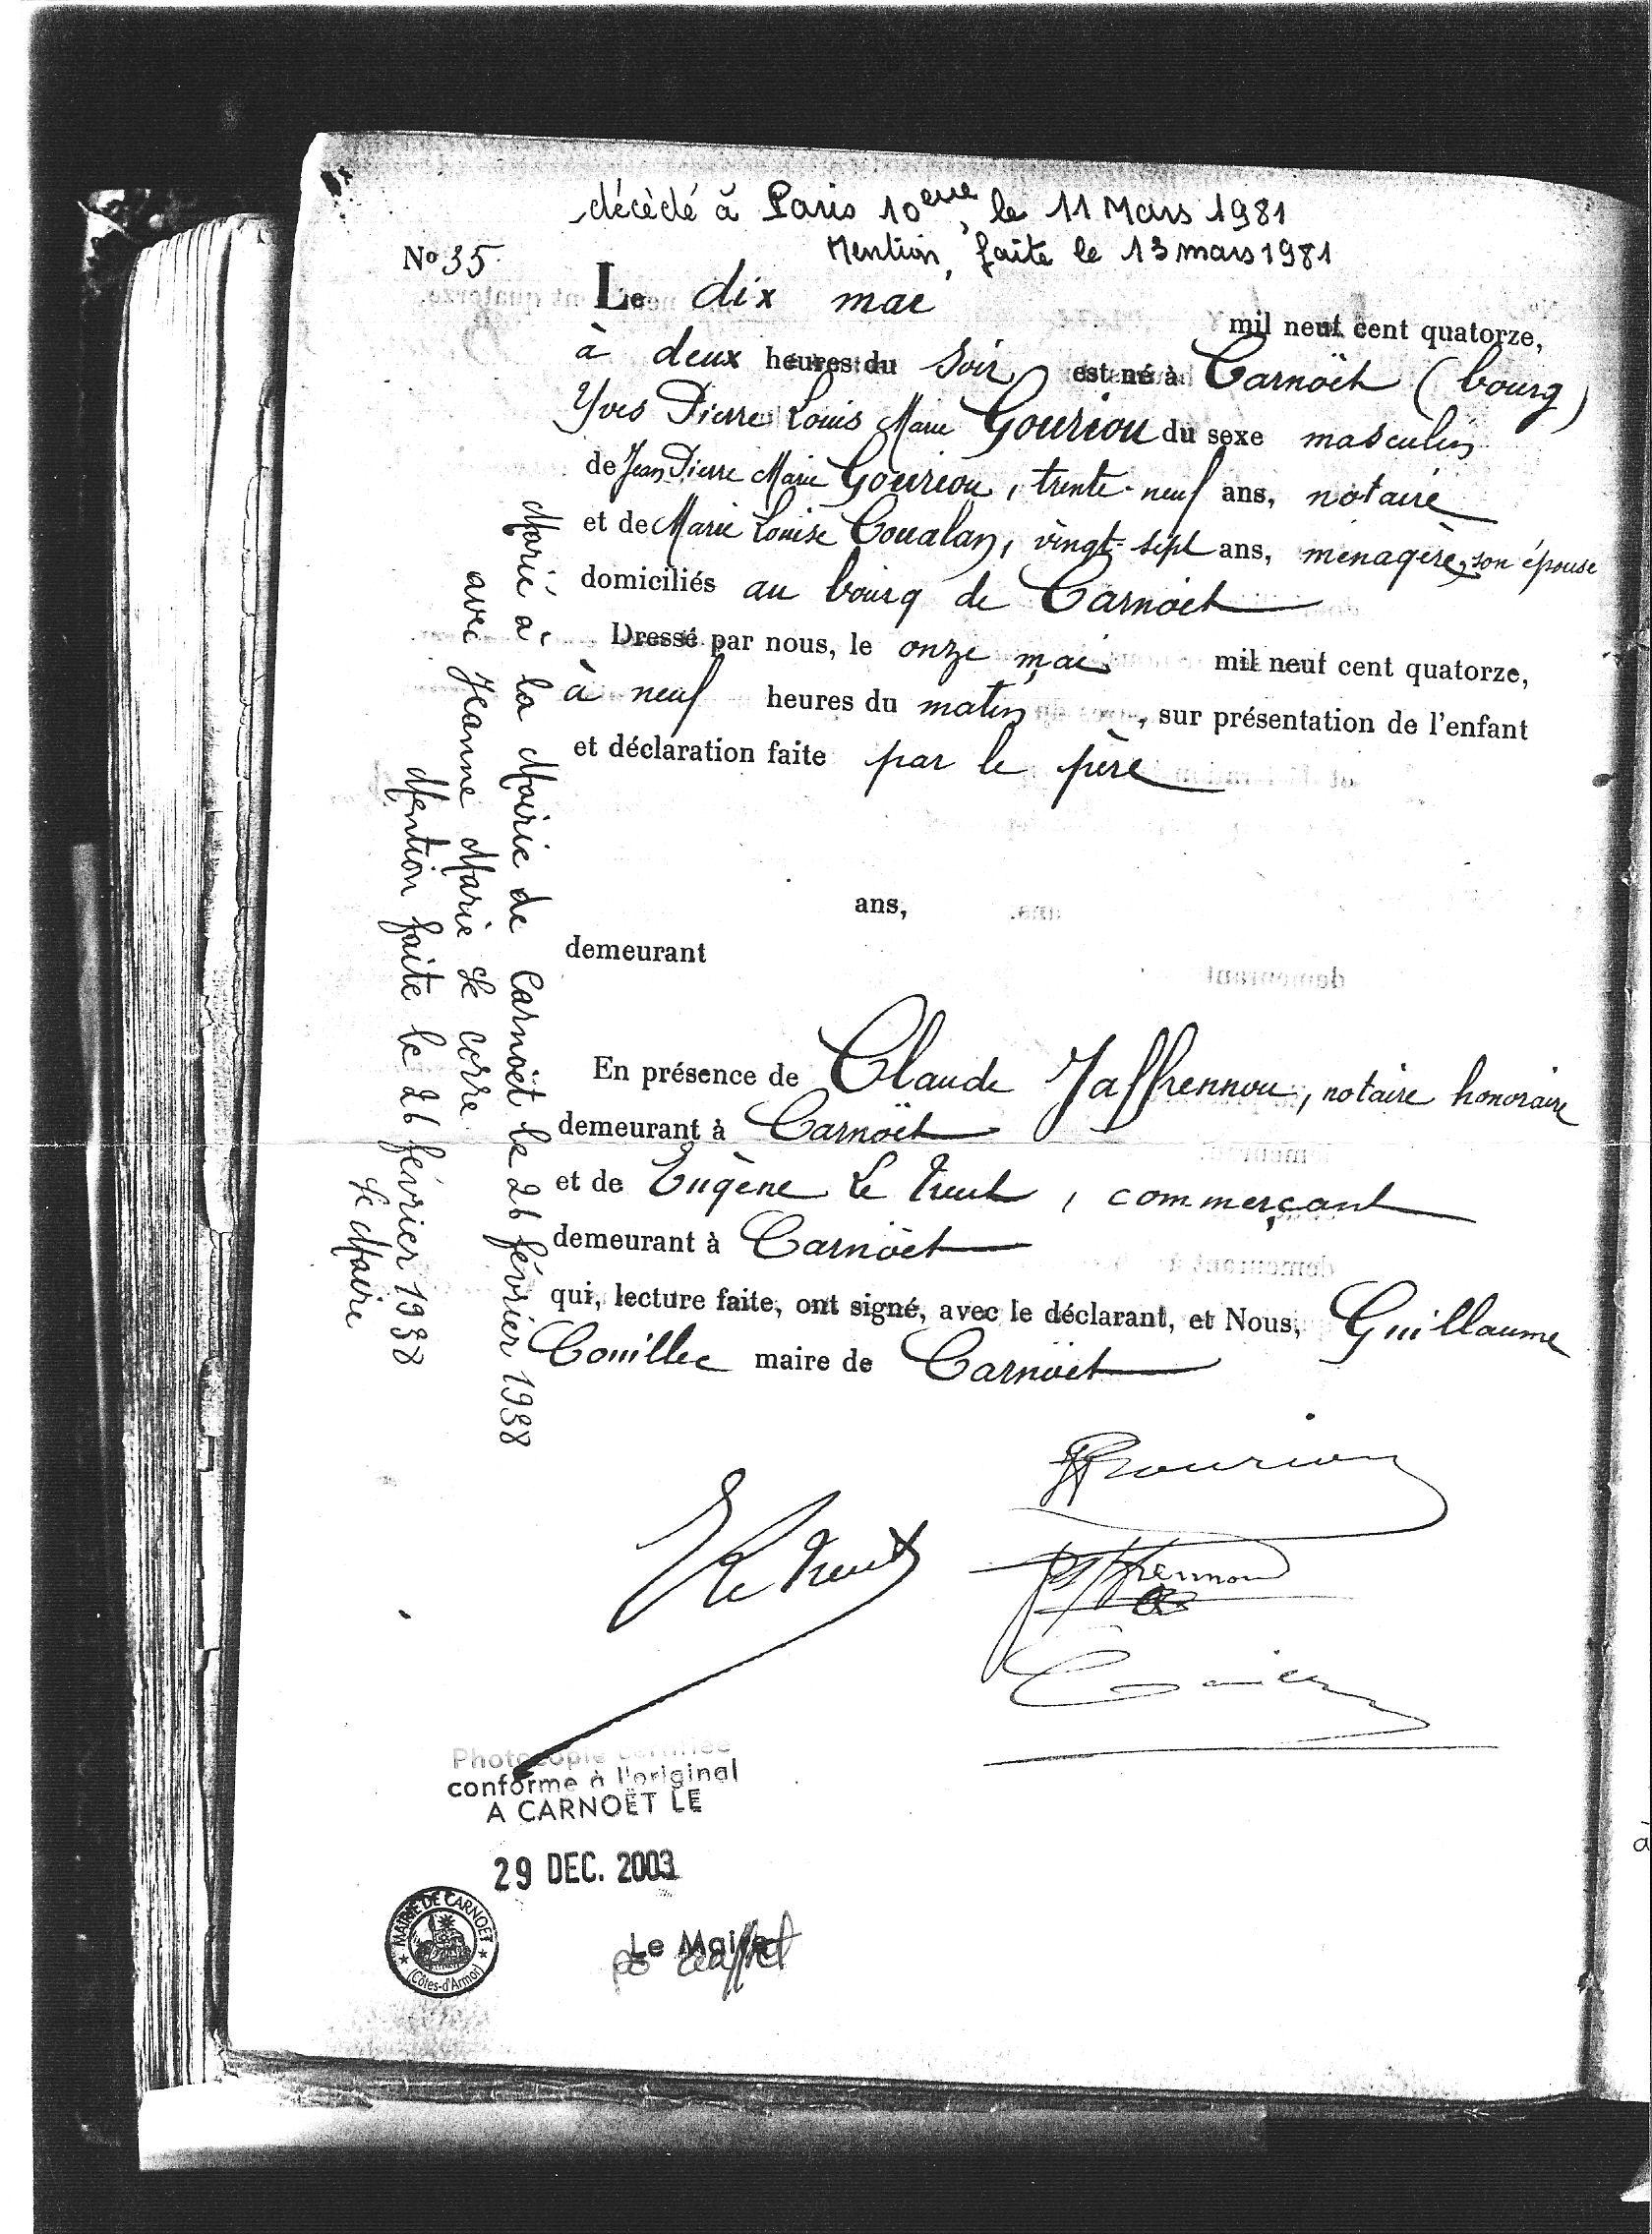 décèdé à Paris 10eme, le 11 Mars 1981
Mention, faite le 13 mars 1981
No 35.
Le dix mai mil neuf cent quatorze,
à deux heures du soir est né à Carnoët (bourg)
Yves Pierre Louis Marie Gouriou du sexe masculin
de Jean Pierre Marie Gouriou, trente-neuf ans, notaire
et de Marie Louise Coualan, vingt-sept ans, ménagère, son épouse
domiciliés au bourg de Carnoët
Dressé par nous, le onze mai mil neuf cent quatorze,
à neuf heures du matin, sur présentation de l'enfant
et déclaration faite par le père
ans,
demeurant
En présence de Claude Jaffrennou, notaire honoraire
demeurant à Carnoët
et de Eugène Le Treut, commerçant
demeurant à Carnoët
qui, lecture faite, ont signé, avec le déclarant, et Nous, Guillaume
Couillec maire de Carnoët
Marié à la Mairie de Carnoët le 26 février 1938
avec Jeanne Marie Le Corre.
Mention faite le 26 février 1938
Le Maire
Gouriou
Le Treut
Jaffrennou
Photocopie certifiée
conforme à l'original
A CARNOËT LE
29 DEC. 2003
MAIRIE DE CARNOET
(Côtes-d'Armor)
Le Maire